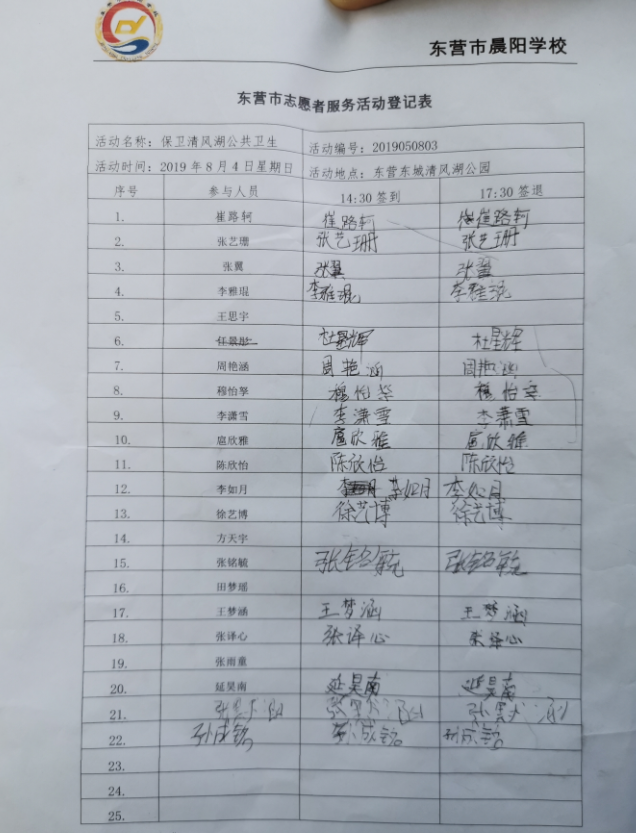 东营市晨阳学校
东营市志愿者服务活动登记表
活动名称：保卫清风湖公共卫生 活动编号：2019050803
活动时间：2019年8月4日星期日 活动地点：东营东城清风湖公园
序号 参与人员 14:30签到 17:30签退
1. 崔路轲 崔路轲 崔路轲
2. 张艺珊 张艺珊 张艺珊
3. 张翼 张翼 张翼
4. 李雅琨 李雅琨 李雅琨
5. 王思宇
6. 杜星辉 杜星辉
7. 周艳涵 周艳涵 周艳涵
8. 穆怡 穆怡 穆怡
9. 李潇雪 李潇雪 李萧雪
10. 扈欣雅 扈欣雅 扈欣雅
11. 陈欣怡 陈欣怡 陈欣怡
12. 李如月 李如月 李如月
13. 徐艺博 徐艺博 徐艺博
14. 方天宇
15. 张铭毓 张铭毓 张铭毓
16. 田梦瑶
17. 王梦涵 王梦涵 王梦涵
18. 张译心 张译心 张译心
19. 张雨童
20. 延昊南 延昊南 延昊南
21.
22. 孙成铭 孙成铭 孙成铭
23.
24.
25.